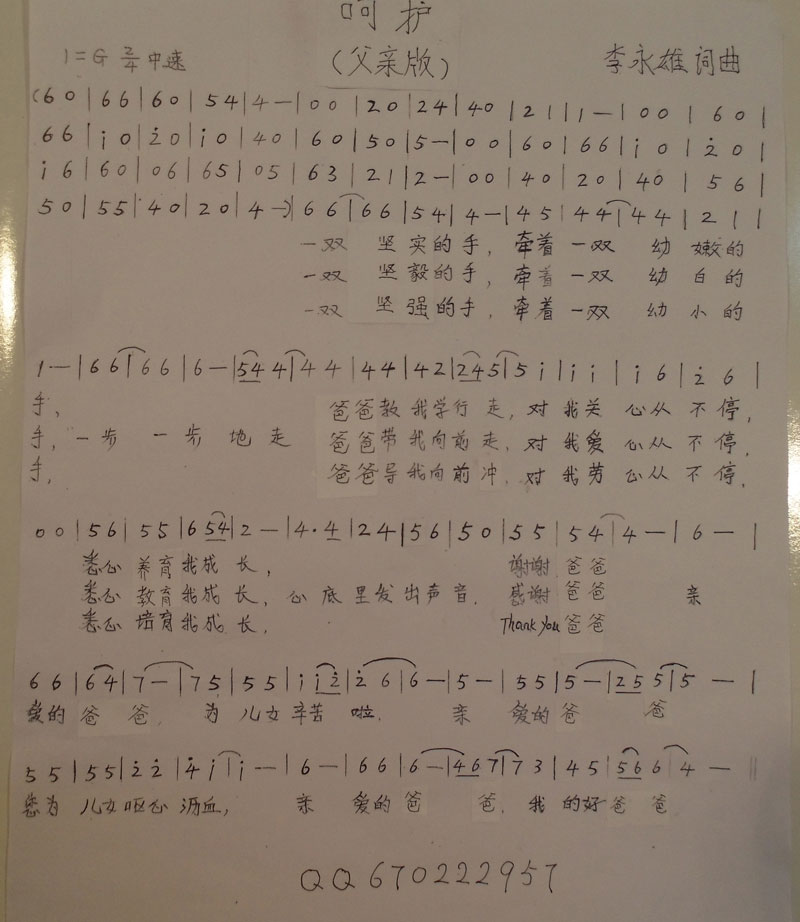 呵护
1=G 2/4 中速 （父亲版） 李永雄 词曲
(6 0 | 6 6 | 6 0 | 5 4 | 4 — | 0 0 | 2 0 | 2 4 | 4 0 | 2 1 | 1 — | 0 0 | 6 0 |
6 6 | i 0 | 2̇ 0 | i 0 | 4 0 | 6 0 | 5 0 | 5 — | 0 0 | 6 0 | 6 6 | i 0 | 2̇ 0 |
i 6 | 6 0 | 0 6 | 6 5 | 0 5 | 6 3 | 2 1 | 2 — | 0 0 | 4 0 | 2 0 | 4 0 | 5 6 |
5 0 | 5 5 | 4 0 | 2 0 | 4 —) | 6 6 | 6 6 | 5 4 | 4 — | 4 5 | 4 4 | 4 4 | 2 1 |
一双 坚实的手，牵着一双 幼 嫩的
一双 坚毅的手，牵着一双 幼 白的
一双 坚强的手，牵着一双 幼 小的
1 — | 6 6 | 6 6 | 6 — | 5 4 4 | 4 4 | 4 4 | 4 2 | 2 4 5 | 5 i | i i | i 6 | 2̇ 6 |
手， 爸爸教我学行走，对我关 心从 不停，
手，一步 一步地走 爸爸带我向前走，对我爱 心从 不停，
手， 爸爸导我向前冲，对我劳 心从 不停，
0 0 | 5 6 | 5 5 | 6 5 4 | 2 — | 4· 4 | 2 4 | 5 6 | 5 0 | 5 5 | 5 4 | 4 — | 6 — |
悉心 养育我成长， 谢谢 爸爸
悉心 教育我成长，心底里发出声音. 感谢 爸爸 亲
悉心 培育我成长， Thank you 爸爸
6 6 | 6 4 | 7 — | 7 5 | 5 5 | i i 2̇ | 2̇ 6 | 6 — | 5 — | 5 5 | 5 — | 2 5 5 | 5 — |
爱的 爸 爸， 为 儿女辛苦 啦， 亲 爱的爸 爸
5 5 | 5 5 | 2̇ 2̇ | 4̇ i | i — | 6 — | 6 6 | 6 — | 4 6 7 | 7 3 | 4 5 | 5 6 6 | 4 — ||
您为 儿女呕心 沥血， 亲 爱的爸 爸，我 的好 爸 爸
QQ670222957